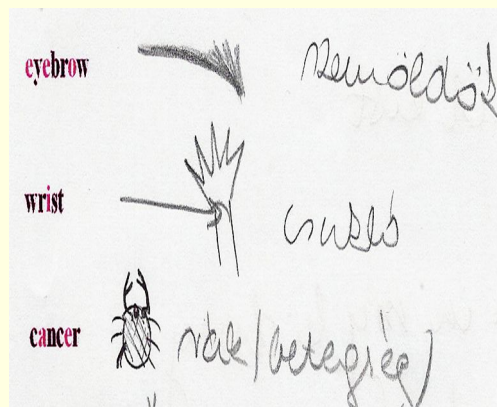 eyebrow szemöldök
wrist csukló
cancer rák (betegség)